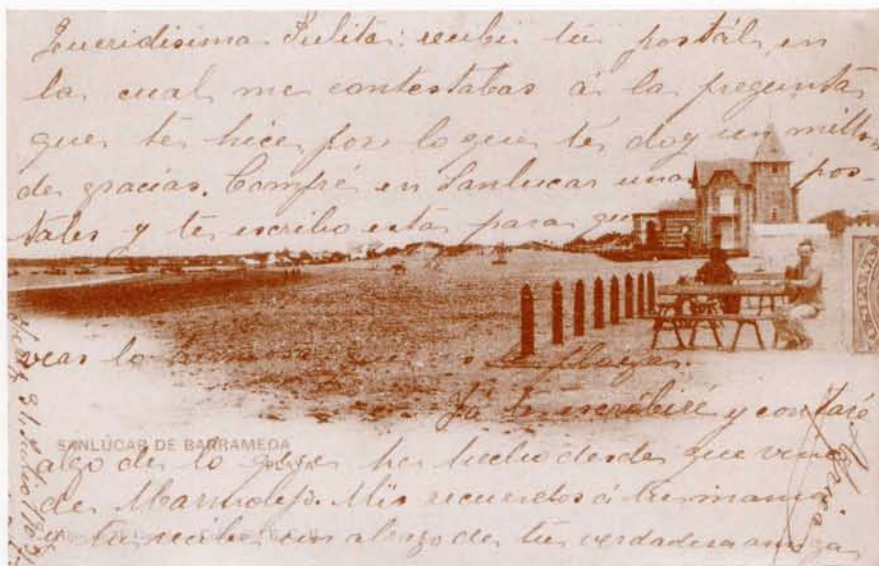 Queridisima Julita: recibi tú postál en
la cual me contestabas á la pregunta
que té hice, por lo que té doy un millon
de gracias. Compré en Sanlucar unas pos-
tales y te escribo esta para que
veas lo hermosa que es la playa.
Yá te escribiré y contaré
algo de lo que he hecho desde que vine
de Marmolejo. Mis recuerdos á tu mamá
y tu recibe un abrazo de tú verdadera amiga
SANLÚCAR DE BARRAMEDA
31 Julio